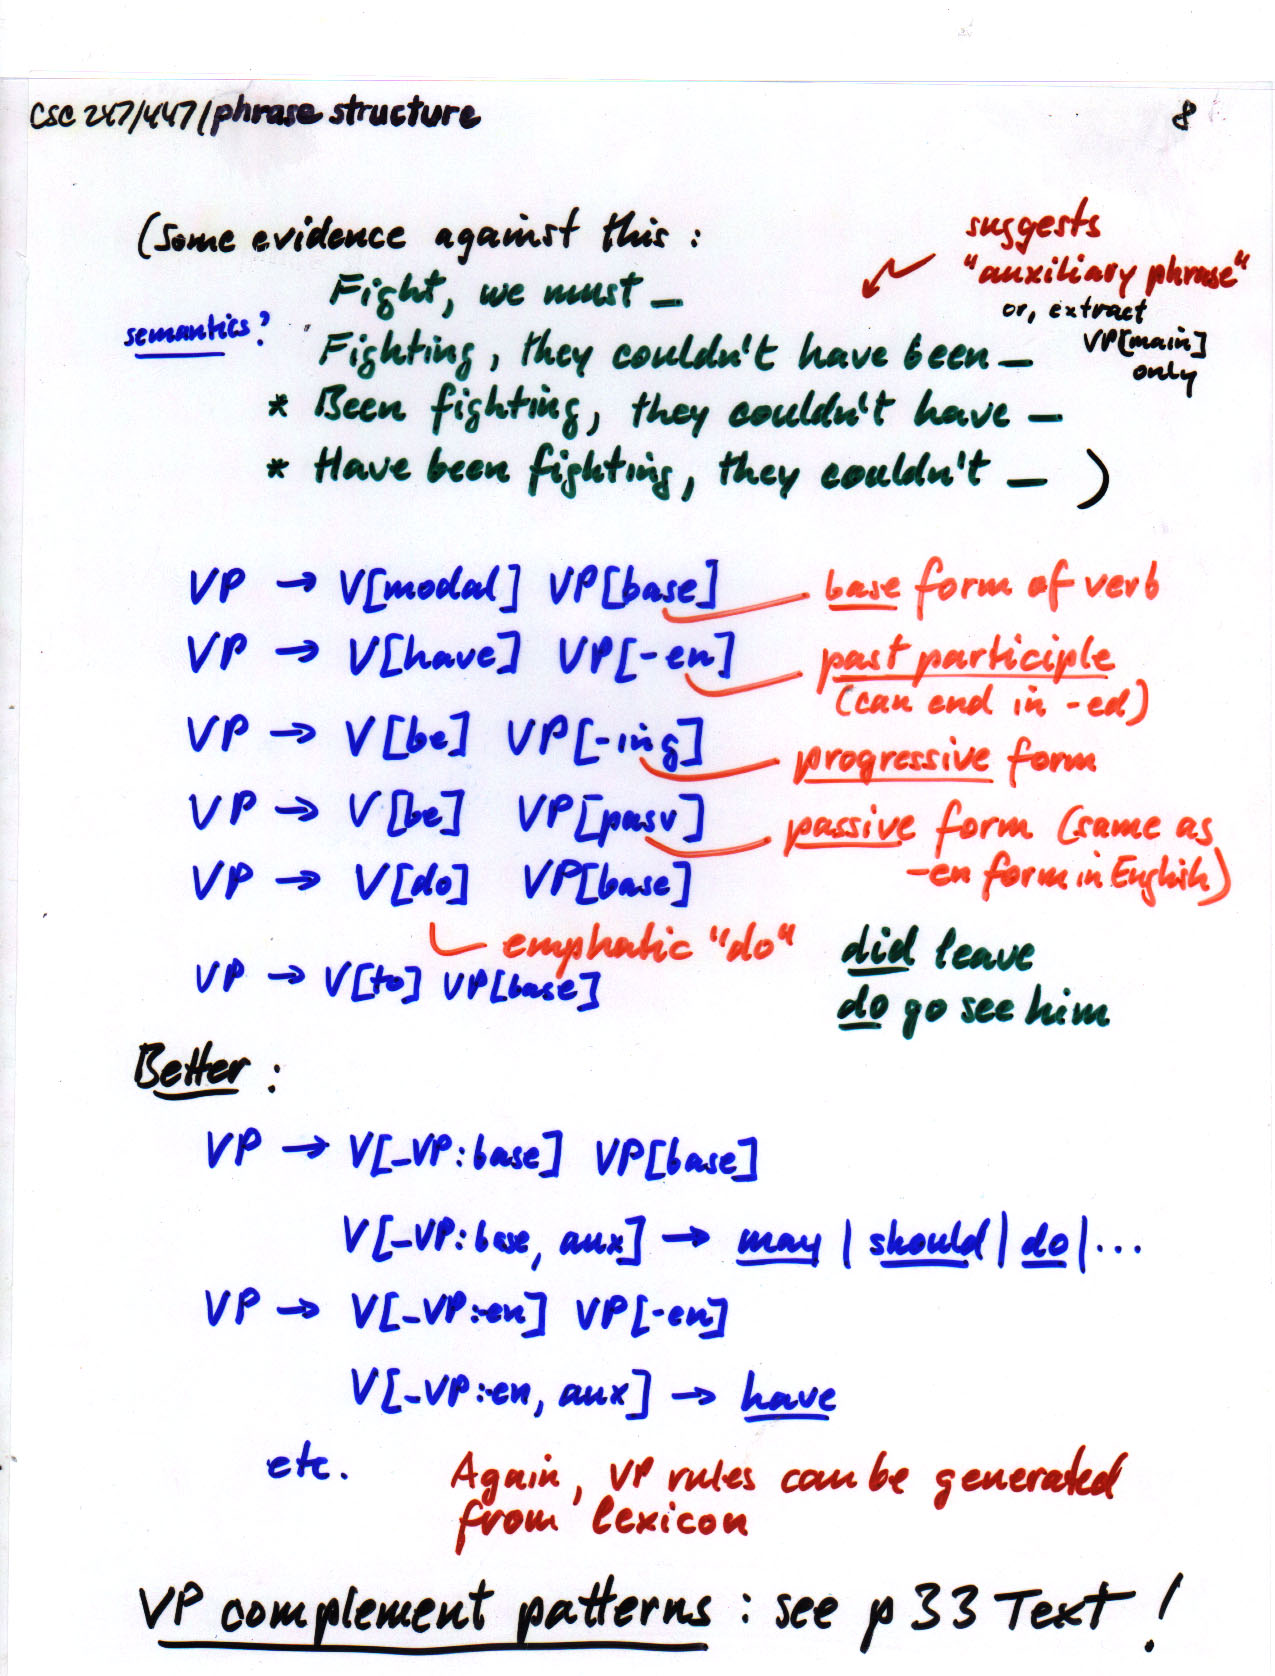 CSC 247/447/phrase structure 8
(Some evidence against this:
suggests
"auxiliary phrase"
or, extract
VP[main]
only
Fight, we must _
semantics?
Fighting, they couldn't have been _
* Been fighting, they couldn't have _
* Have been fighting, they couldn't _ )
VP → V[modal] VP[base] base form of verb
VP → V[have] VP[-en] past participle
(can end in -ed)
VP → V[be] VP[-ing] progressive form
VP → V[be] VP[pasv] passive form (same as
-en form in English)
VP → V[do] VP[base]
emphatic "do" did leave
VP → V[to] VP[base]
do go see him
Better:
VP → V[_VP:base] VP[base]
V[_VP:base, aux] → may | should | do | ...
VP → V[_VP:-en] VP[-en]
V[_VP:-en, aux] → have
etc. Again, VP rules can be generated
from lexicon
VP complement patterns: see p 33 Text!